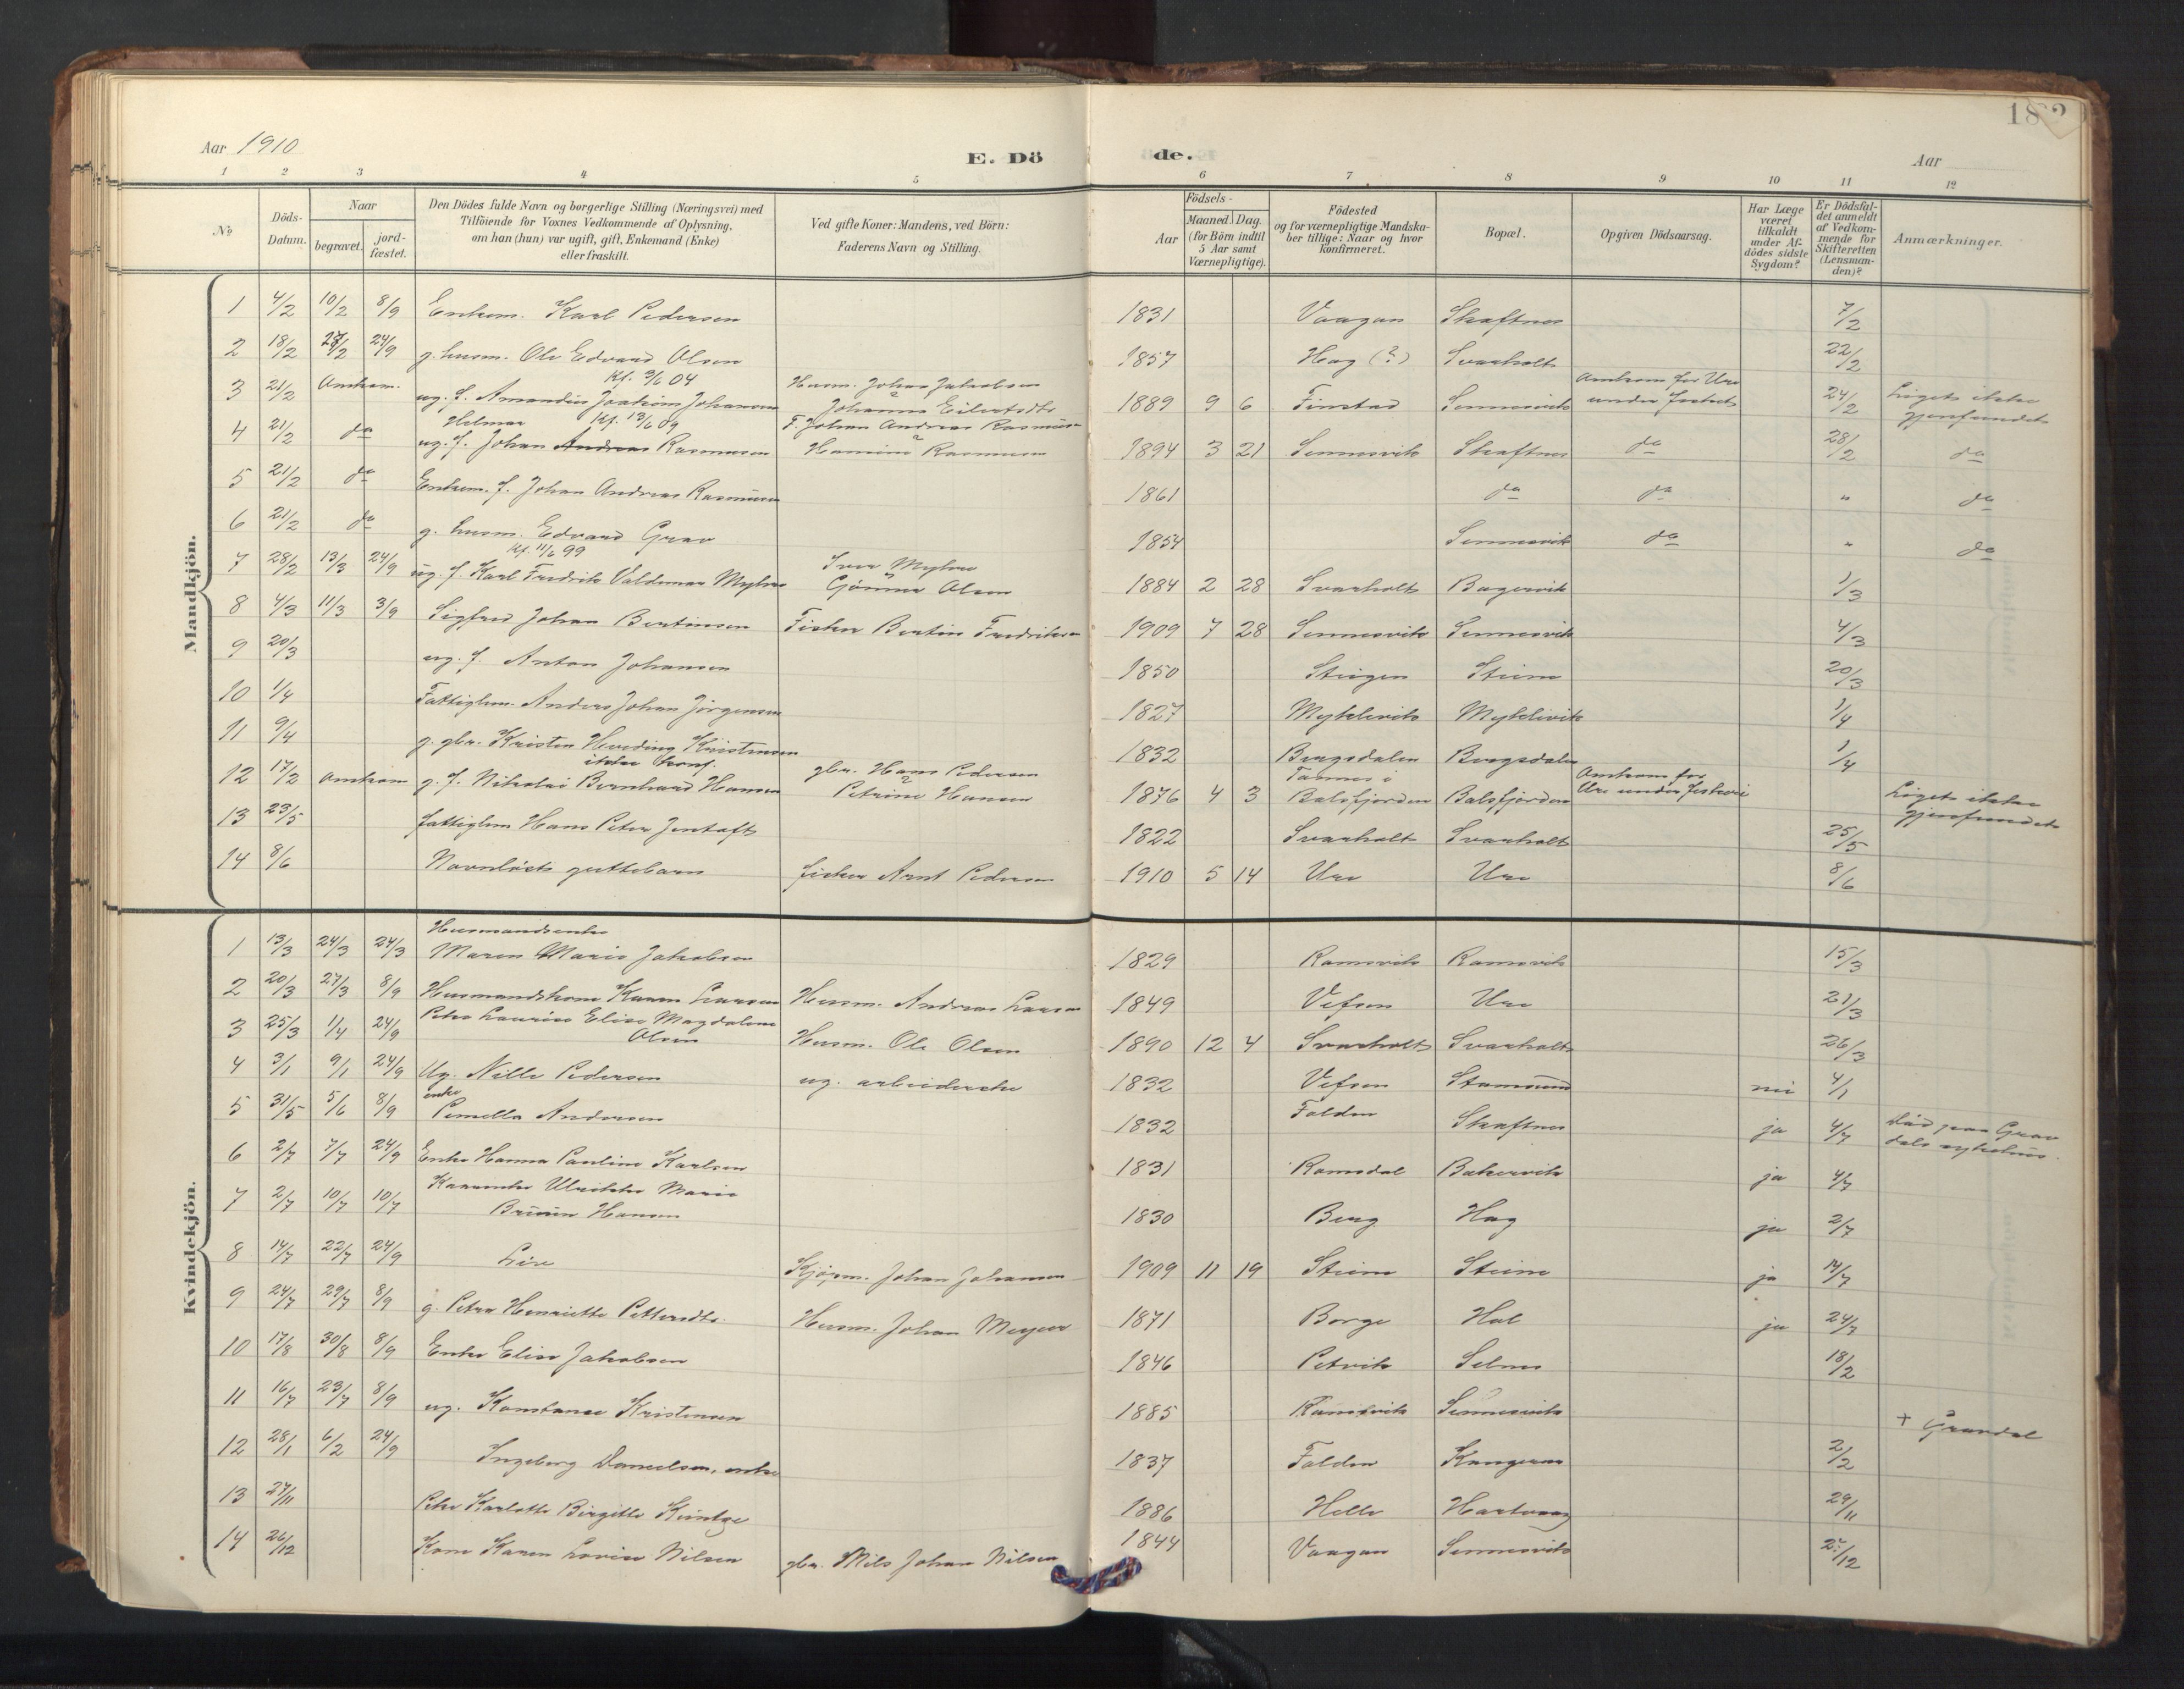 182
Aar 1910
E. Dö
de.
Aar
1 2 3 4 5 6 7 8 9 10 11 12
No
Döds-
Datum.
Naar
begravet.
jord-
fæstet.
Den Dödes fulde Navn og borgerlige Stilling (Næringsvei) med
Tilföiende for Voxnes Vedkommende af Oplysning,
om han (hun) var ugift, gift, Enkemand (Enke)
eller fraskilt.
Ved gifte Koner: Mandens, ved Börn:
Faderens Navn og Stilling.
Födsels-
Aar
Maaned. Dag.
(for Börn indtil
5 Aar samt
Værnepligtige).
Födested
og for værnepligtige Mandska-
ber tillige: Naar og hvor
konfirmeret.
Bopæl.
Opgiven Dödsaarsag.
Har Læge
været
tilkaldt
under Af-
dödes sidste
Sygdom?
Er Dödsfal-
det anmeldt
af Vedkom-
mende for
Skifteretten
(Lensman-
den)?
Anmærkninger.
Mandkjön.
1 4/2 10/2 8/9 Enkem. Karl Pedersen 1831 Vaagan Skaftnes 7/2
2 18/2 27/2 24/9 g. husm. Ole Edvard Olsen 1857 Hag (?) Svarholt 22/2
3 21/2 Omkom. Kf. 3/6 04
ug. f. Amandus Joakim Johansen Husm. Johan Jakobsen
Johanna Eilertsdtr 1889 9 6 Finstad Sennesvik Omkom for Ure
under fiskeri 24/2 Liget ikke
gjenfundet
4 21/2 do Helmer Kf. 13/6 09
ug. f. Johan Andreas Rasmusen F. Johan Andreas Rasmusen
Rasmusen 1894 3 21 Sennesvik Skaftnes do 28/2 do
5 21/2 do Enkem. f. Johan Andreas Rasmusen 1861 do do " do
6 21/2 do g. husm. Edvard Grav 1854 Sennesvik do " do
7 28/2 13/3 24/9 Kf. 11/6 99
ug. f. Karl Fredrik Valdemar Myhre Iver Myhre
Olsen 1884 2 28 Svarholt 1/3
8 4/3 11/3 3/9 Sigfred Johan Bertinsen Fisker Bertin Fredriksen 1909 7 28 Sennesvik Sennesvik 4/3
9 20/3 ug. f. Anton Johansen 1850 Steigen Steine 20/3
10 1/4 Fattiglem. Anders Johan Jörgensen 1827 Myklevik Myklevik 1/4
11 9/4 g. gbr. Kristen Heveding Kristensen 1832 Bergsdalen Bergsdalen 1/4
12 17/2 Omkom ikke konf.
g. f. Nikolai Bernhard Hansen gbr. Hans Pedersen
Petrine Hansen 1876 4 3 Tannes i
Balsfjorden Balsfjorden Omkom for
Ure under fiskeri Liget ikke
gjenfundet
13 23/5 fattiglem Hans Peter Jentoft 1822 Svarholt Svarholt 25/5
14 8/6 Navnlöst guttebarn fisker Arnt Pedersen 1910 5 14 Ure Ure 8/6
Kvindekjön.
1 13/3 24/3 24/3 Husmandsenke
Maren Marie Jakobsen 1829 Ramsvik Ramsvik 15/3
2 20/3 27/3 8/9 Husmandskone Karen Larsen Husm. Andreas Larsen 1849 Vefsen Ure 21/3
3 25/3 1/4 24/9 Petra Laurise Elise Magdalene
Olsen Husm. Ole Olsen 1890 12 4 Svarholt Svarholt 26/3
4 3/1 9/1 24/9 Ug. Nille Pedersen ug. arbeiderske 1832 Vefsen Stamsund nei 4/1
5 31/5 5/6 8/9 enke
Pernella Andersen 1832 Folden Skaftnes ja 4/7 Död paa Grav
dals sykehus.
6 2/7 7/7 24/9 Enke Hanna Pauline Karlsen 1831 Ramsdal Bakervik ja 4/7
7 2/7 10/7 10/7 Kaarenke Ulrikke Marie
Bruun Hansen 1830 Berg Hag ja 2/7
8 14/7 22/7 24/9 Live Kjøpm. Johan Johansen 1909 11 19 Steine Steine ja 14/7
9 24/7 29/7 8/9 g. Petra Henriette Pettersdtr. Husm. Johan Meyer 1871 Borge Hol ja 24/7
10 17/8 30/8 8/9 Enke Elise Jakobsen 1846 Petvik Selnes 18/2
11 16/7 23/7 8/9 ug. Konstanse Kristensen 1885 Ramsvik Sennesvik + Gravdal
12 28/1 6/2 24/9 Ingeborg Danielsen, enke 1837 Folden Kangerur 2/2
13 27/11 Petra Karlotte Birgitte Küntze 1886 Helle Hartvaag 29/11
14 26/12 Kone Karen Lovise Nilsen gbr. Nils Johan Nilsen 1844 Vaagan Sennesvik 27/12